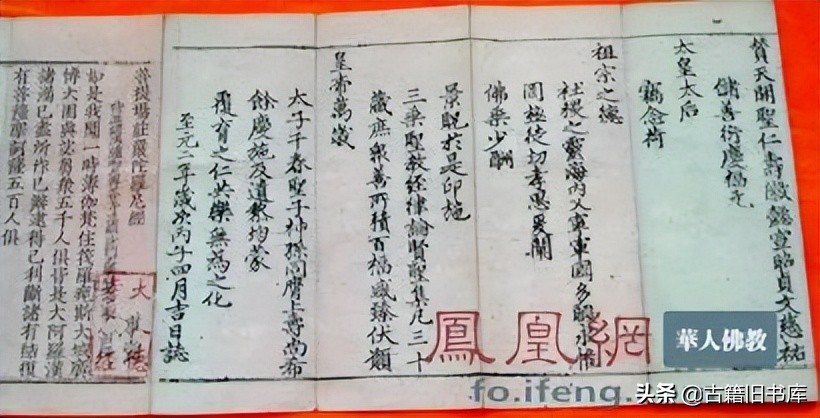 贊天開聖仁壽徽懿宣昭貞文慈祐
儲善衍慶福元
太皇太后
竊念荷
祖宗之德
社稷之靈海內乂寧軍國多暇永惟
罔極徒切孝思爰闡
佛乘少酬
景貺於是印施
三乘聖教經律論賢聖集凡三十
藏庶眾善所積百福咸臻伏願
皇帝萬歲
太子千春聖子神孫同膺上壽尚希
餘慶施及遺黎均蒙
覆育之仁共樂無為之化
至元二年歲次丙子四月吉日誌
菩提場莊嚴陀羅尼經
如是我聞一時薄伽梵住筏羅痆斯大城廣
博大園與苾芻眾五千人俱皆是大阿羅漢
諸漏已盡所作已辦逮得己利斷諸有結復
有菩薩摩訶薩五百人俱
鳳凰網
fo.ifeng.
華人佛教
头条 @古籍旧书库